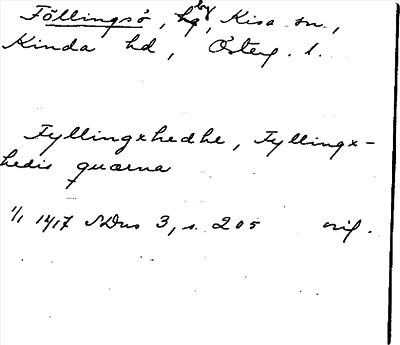 Föllingsö, by, Kisa sn.,
Kinda hd, Österg. l.
Fyllingxhedhe, Fyllingx-
hedis quærna
1/1 1417 SDns 3, s. 205 orig.